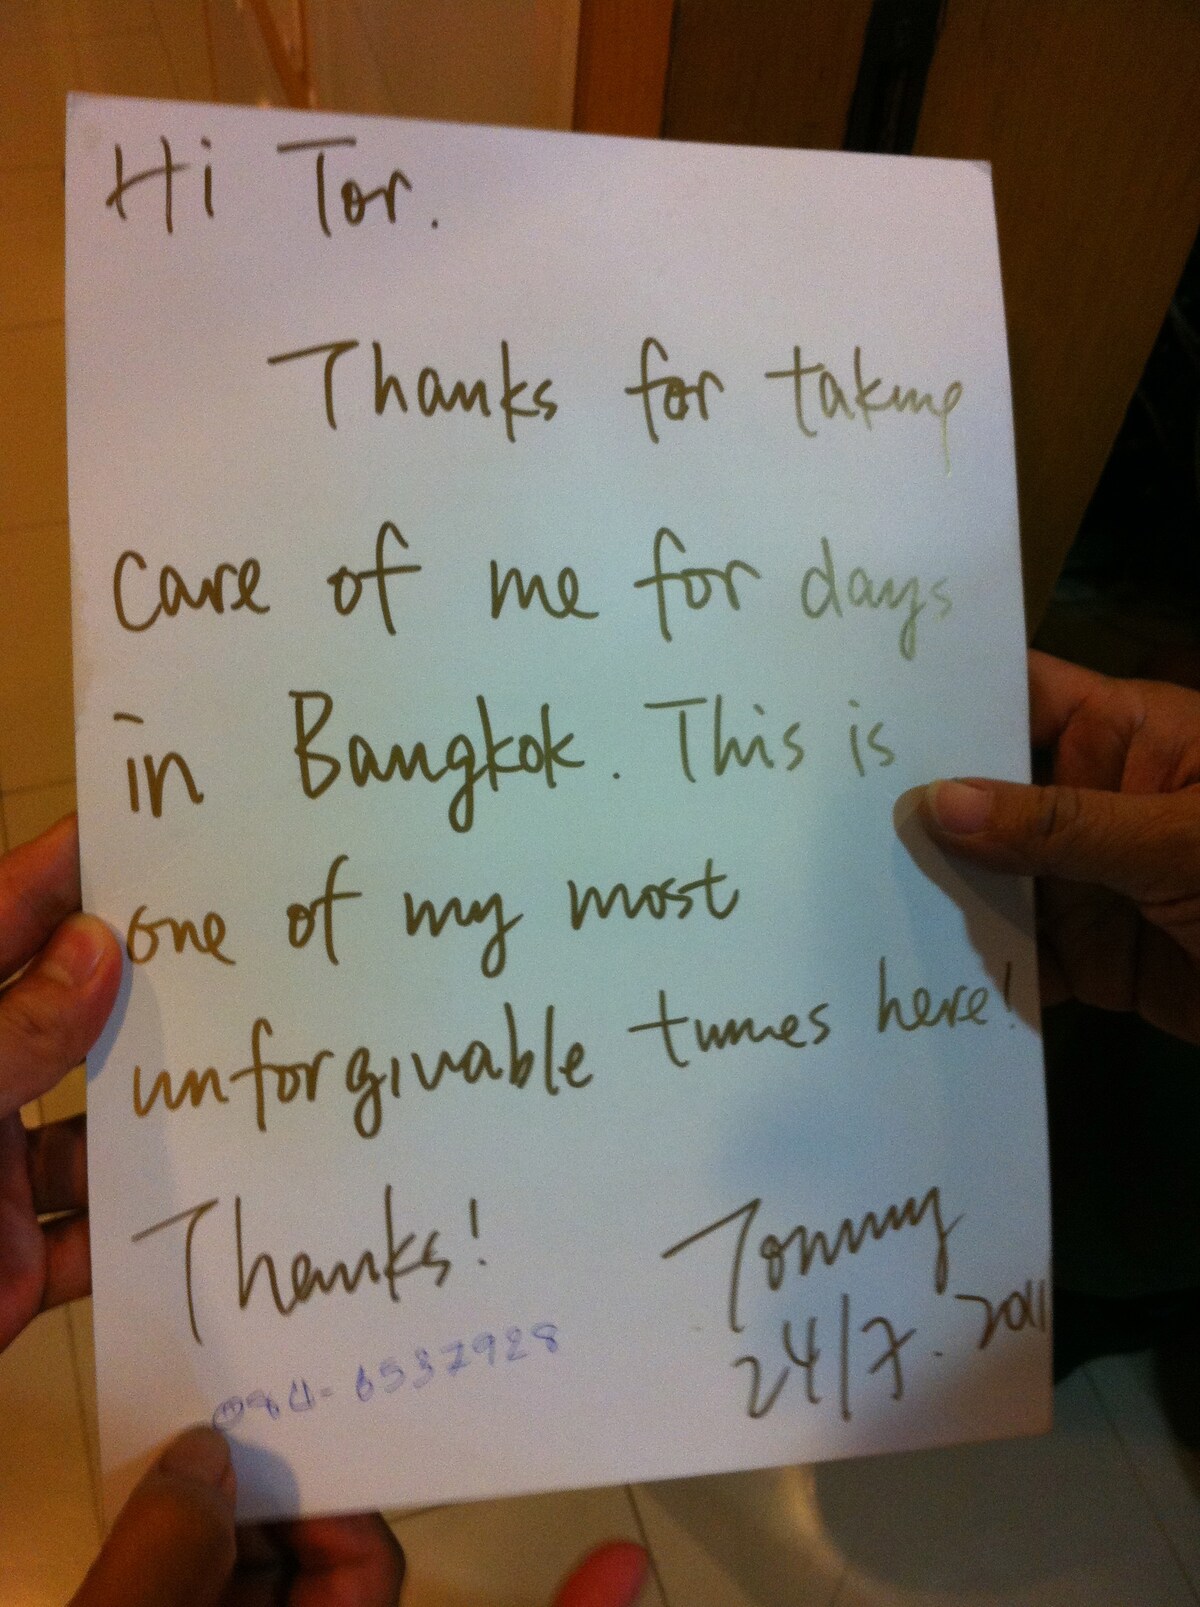 Hi Tor.
Thanks for taking
care of me for days
in Bangkok. This is
one of my most
unforgivable times here!
Thanks! Tommy
24/7. 2011
084-6537928